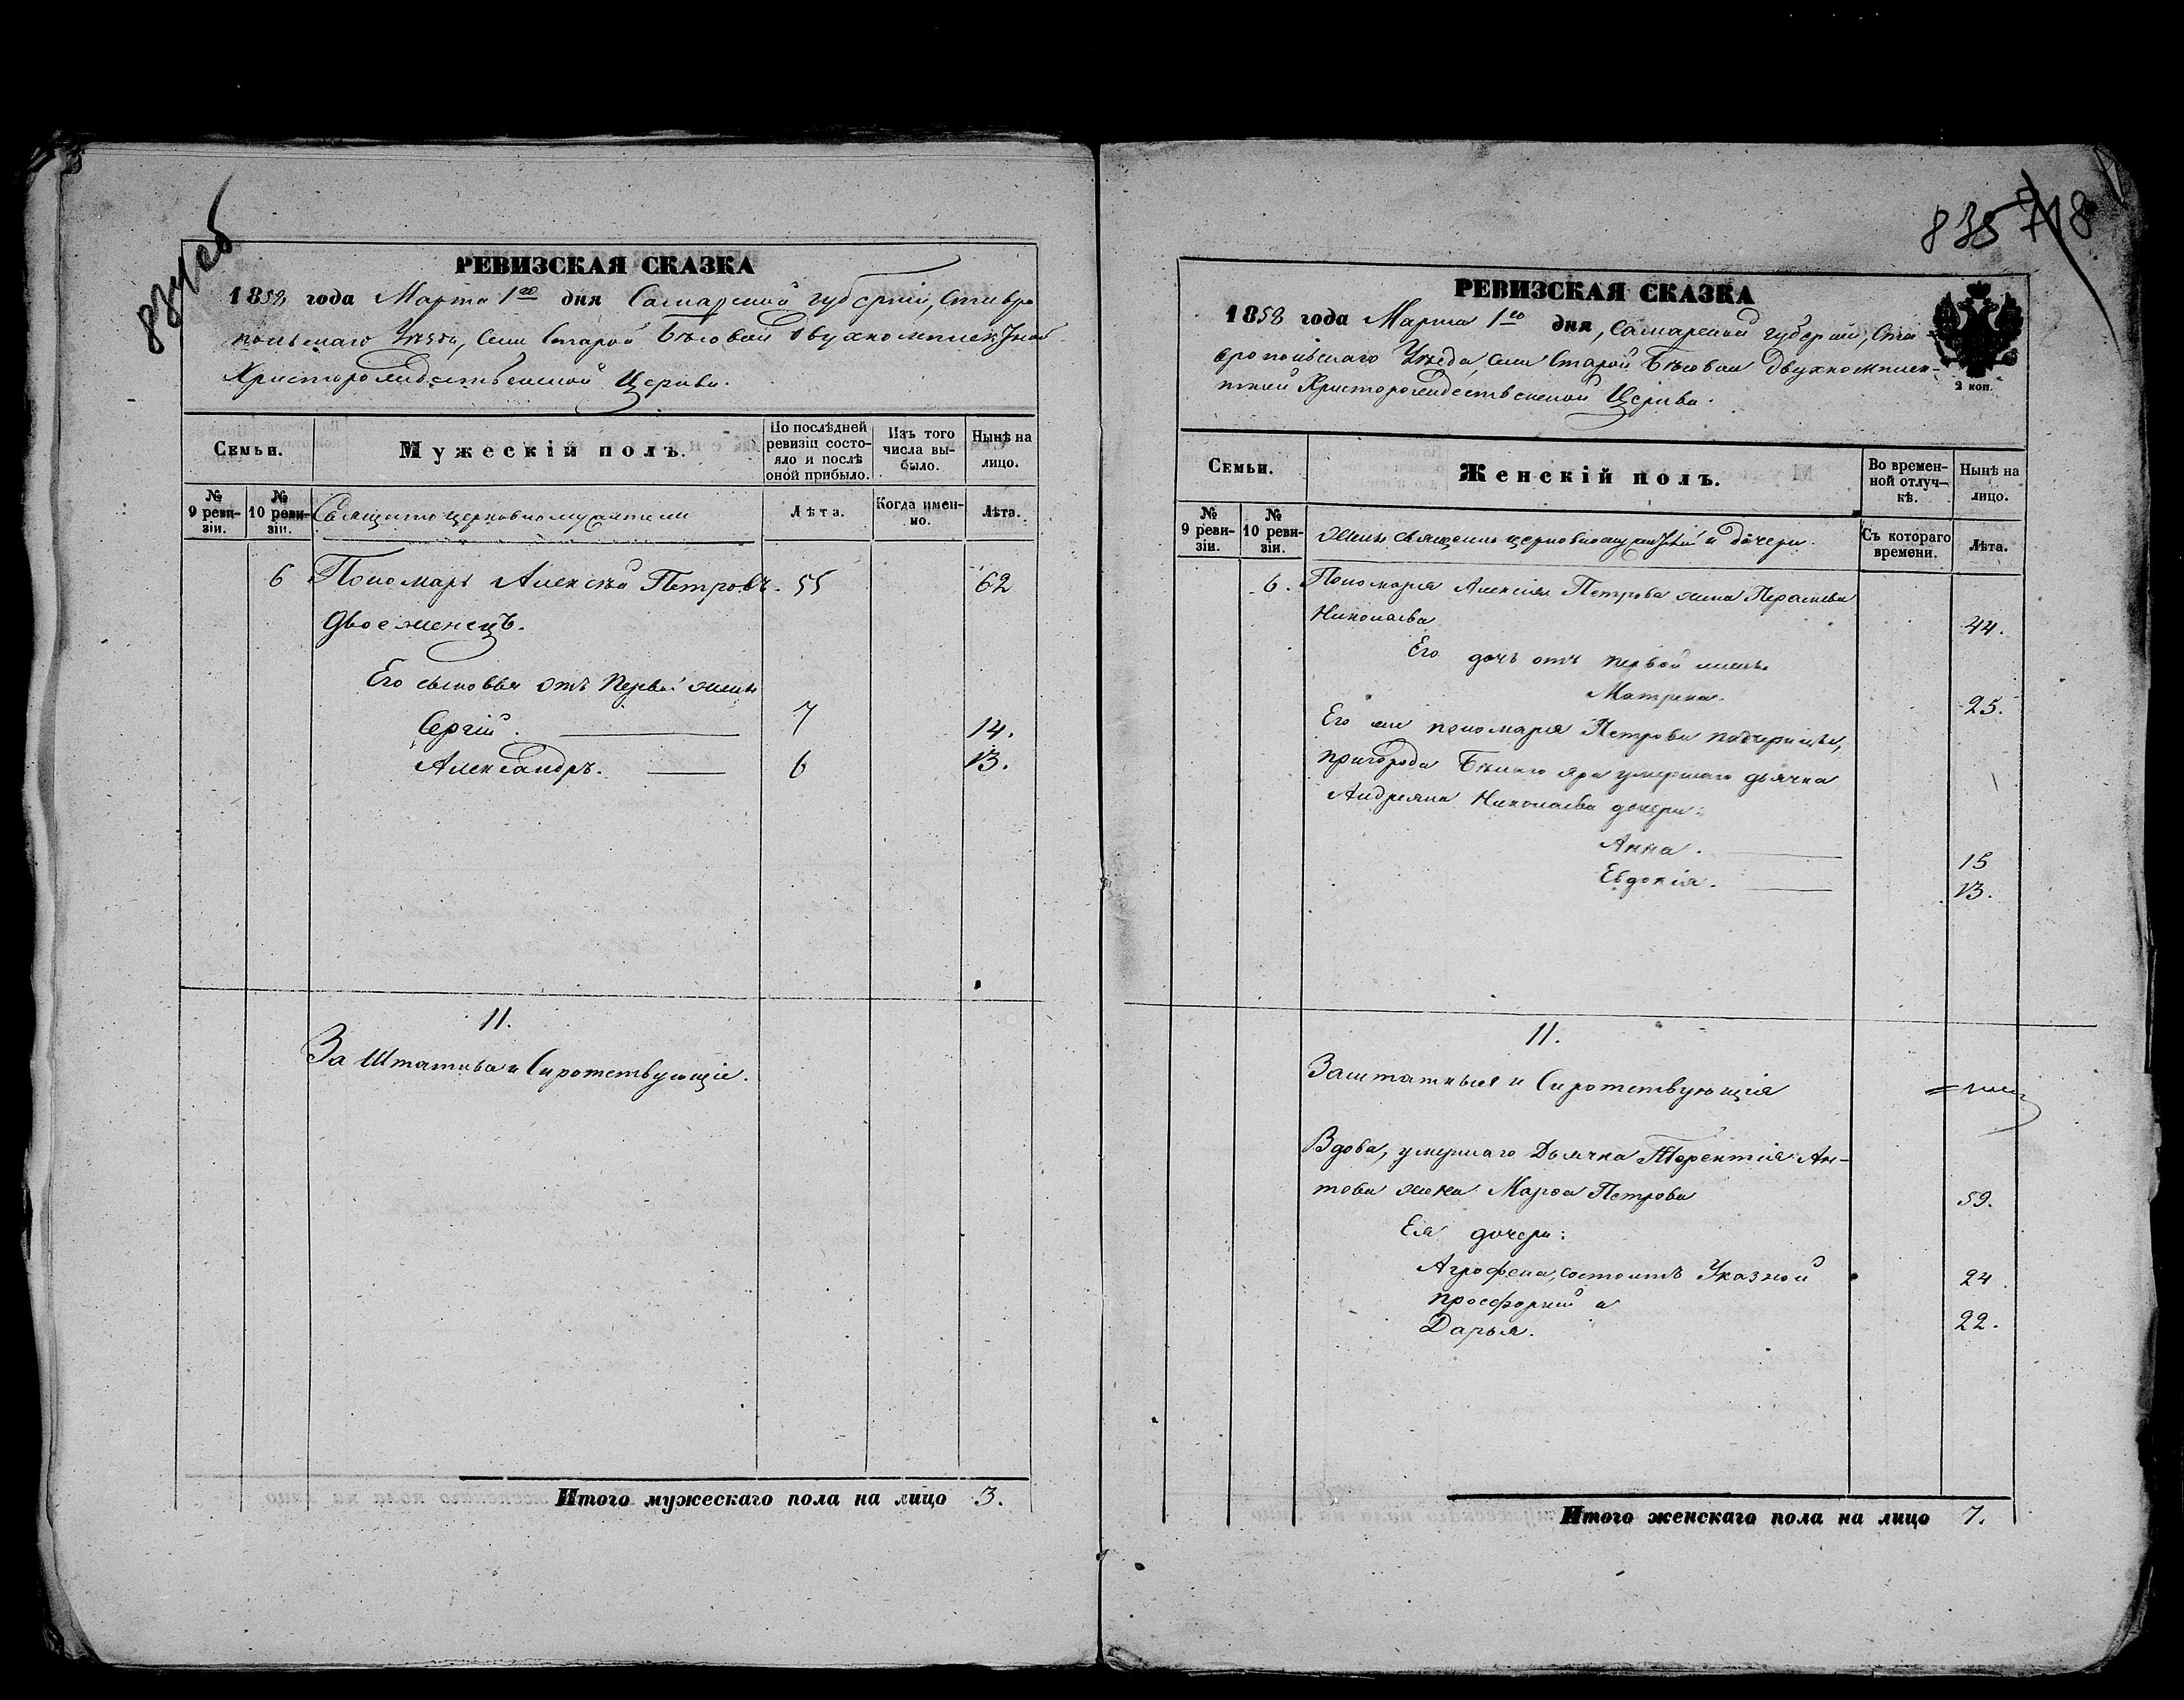 837 об
РЕВИЗСКАЯ СКАЗКА
1858 года Марта 1го дня Самарской губерніи, Ставро
польскаго Уѣзда, села Старой Бѣсовки двухкомплектной
Христорождественской Церкви.
Семьи.
Мужескій полъ.
По послѣдней ревизіи состояло и послѣ оной прибыло.
Изъ того числа выбыло.
Нынѣ на лицо.
№ 9 ревизіи.
№ 10 ревизіи.
Священноцерковнослужители
Лѣта.
Когда именно.
Лѣта.
6 Пономарь Алексѣй Петровъ. 55 62
двоеженецъ.
Его сыновья отъ первой жены
Сергій. 7 14.
Александръ. 6 13.
II.
Заштатные и Сиротствующіе.
Итого мужескаго пола на лицо 3.
838 718
РЕВИЗСКАЯ СКАЗКА
1858 года Марта 1го дня, Самарской губерніи, Ста-
вропольскаго Уѣзда, села Старой Бѣсовки двухкомплек-
тной Христорождественской Церкви.
2 коп.
Семьи.
Женскій полъ.
Во временной отлучкѣ.
Нынѣ на лицо.
№ 9 ревизіи.
№ 10 ревизіи.
Жены священноцерковнослужителей и дочери.
Съ котораго времени.
Лѣта.
6. Пономаря Алексѣя Петрова жена Парасковья
Николаева 44.
Его дочь отъ первой жены
Матрена. 25.
Его же пономаря Петрова падчерицы,
пригорода Бѣлаго яра умершаго дьячка
Андреяна Николаева дочери:
Анна. 15
Евдокія. 13.
II.
Заштатныя и Сиротствующія
Вдова, умершаго Дьячка Терентія Ан-
това жена Марфа Петрова 59.
Ея дочери:
Агрофена, состоитъ Указной 24
просфорней и
Дарья. 22.
Итого женскаго пола на лицо 7.